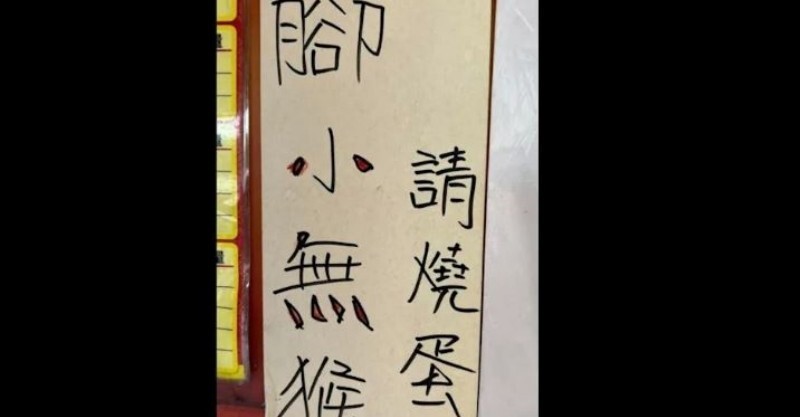 腳小無猴
請燒蛋